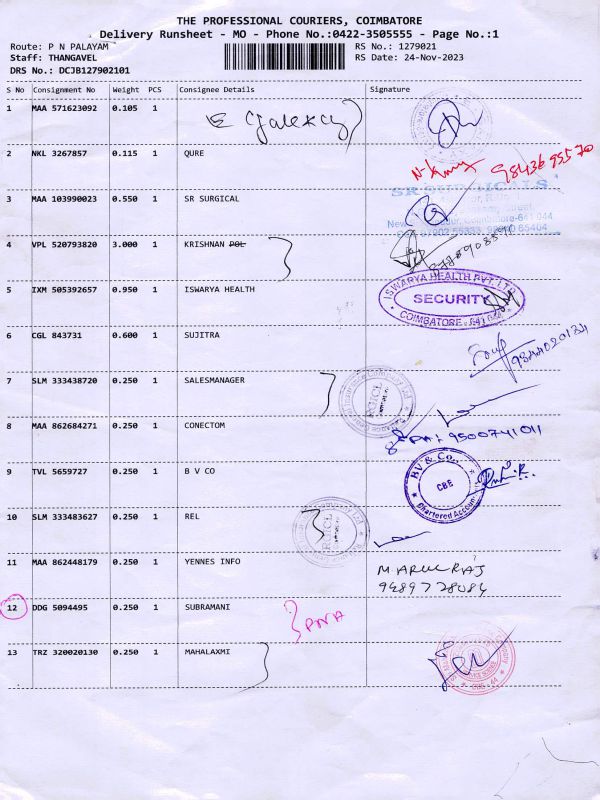 THE PROFESSIONAL COURIERS, COIMBATORE
Delivery Runsheet - MO - Phone No.:0422-3505555 - Page No.:1
Route: P N PALAYAM
RS No.: 1279021
Staff: THANGAVEL
RS Date: 24-Nov-2023
DRS No.: DCJB127902101
S No Consignment No Weight PCS Consignee Details Signature
1 MAA 571623092 0.105 1
2 NKL 3267857 0.115 1 QURE
9843695570
3 MAA 103990023 0.550 1 SR SURGICAL
SR SURGICALS
4 VPL 520793820 3.000 1 KRISHNAN POL
5 IXM 505392657 0.950 1 ISWARYA HEALTH
ISWARYA HEALTH PVT. LTD
SECURITY
COIMBATORE - 641
6 CGL 843731 0.600 1 SUJITRA
7 SLM 333438720 0.250 1 SALESMANAGER
RGICL
8 MAA 862684271 0.250 1 CONECTOM
9500741011
9 TVL 5659727 0.250 1 B V CO
BV & Co.
CBE
Chartered Accountants
10 SLM 333483627 0.250 1 REL
11 MAA 862448179 0.250 1 YENNES INFO
9489728084
12 DDG 5094495 0.250 1 SUBRAMANI
13 TRZ 320020130 0.250 1 MAHALAXMI